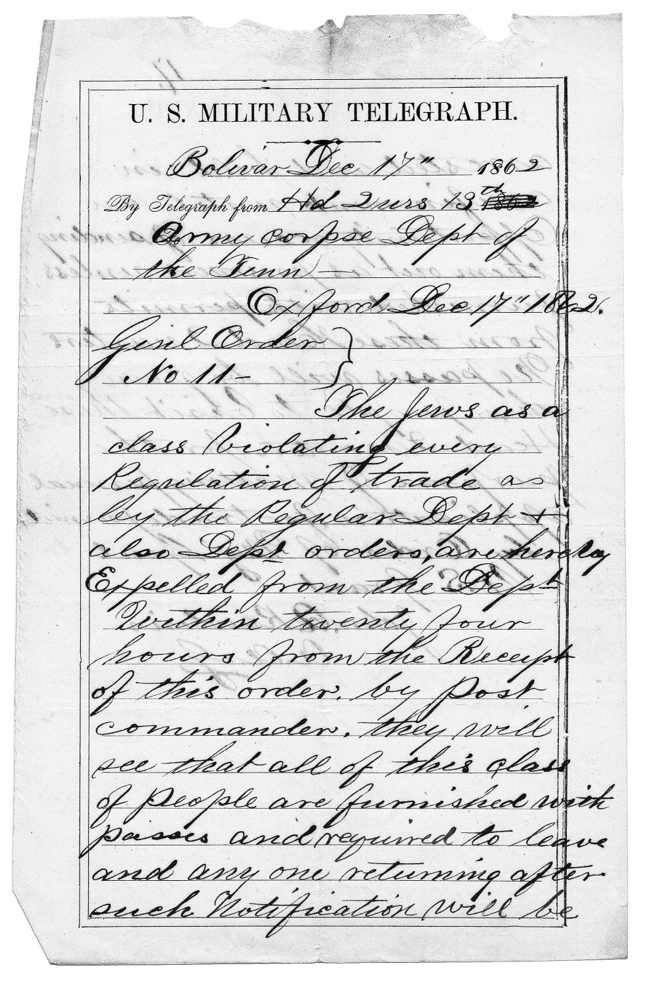 U. S. MILITARY TELEGRAPH.
Bolivar Dec 17" 1862
By Telegraph from Hd Qurs 13th
Army corpse Dept of
the Tenn —
Oxford Dec 17" 1862.
Genl Order
No 11 —
The Jews as a
class violating every
Regulation of trade as
by the Regular Dept +
also Dept orders, are hereby
Expelled from the Dept
Within twenty four
hours from the Receipt
of this order. by Post
commander. they will
see that all of this class
of people are furnished with
passes and required to leave
and any one returning after
such Notification will be